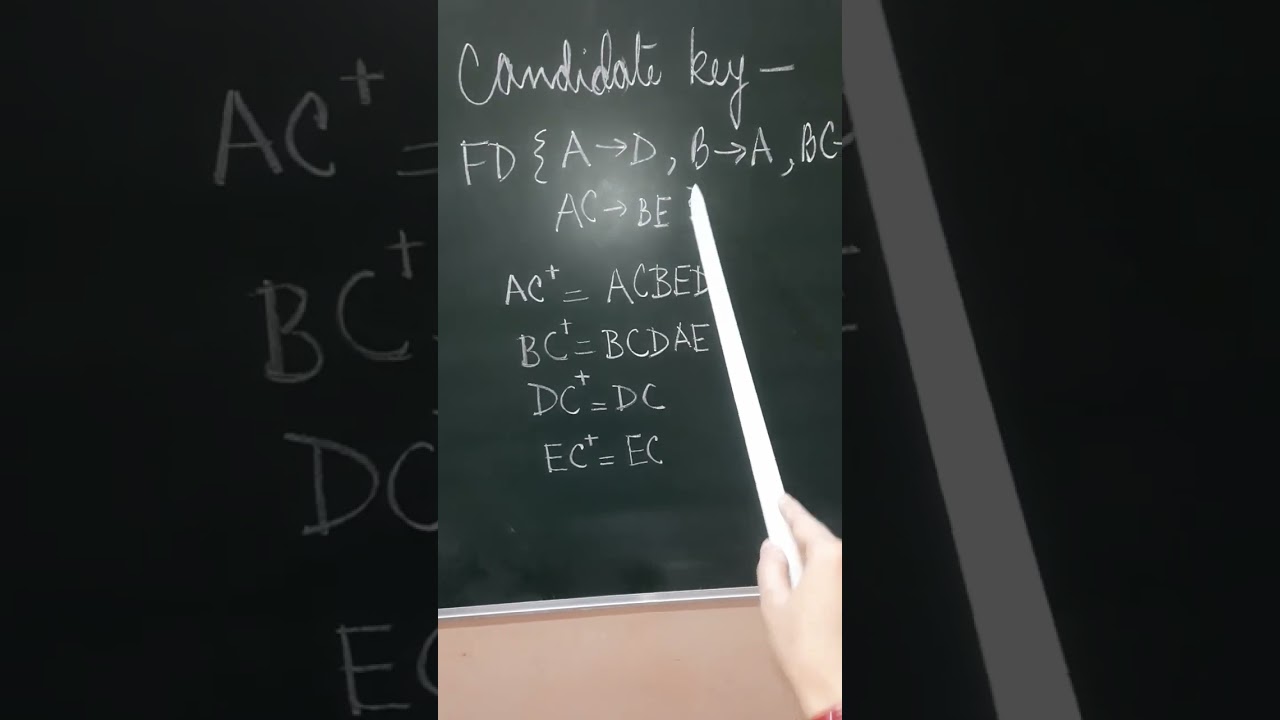 Candidate key –
FD { A → D , B → A , BC
AC → BE
AC⁺ = ACBED
BC⁺ = BCDAE
DC⁺ = DC
EC⁺ = EC